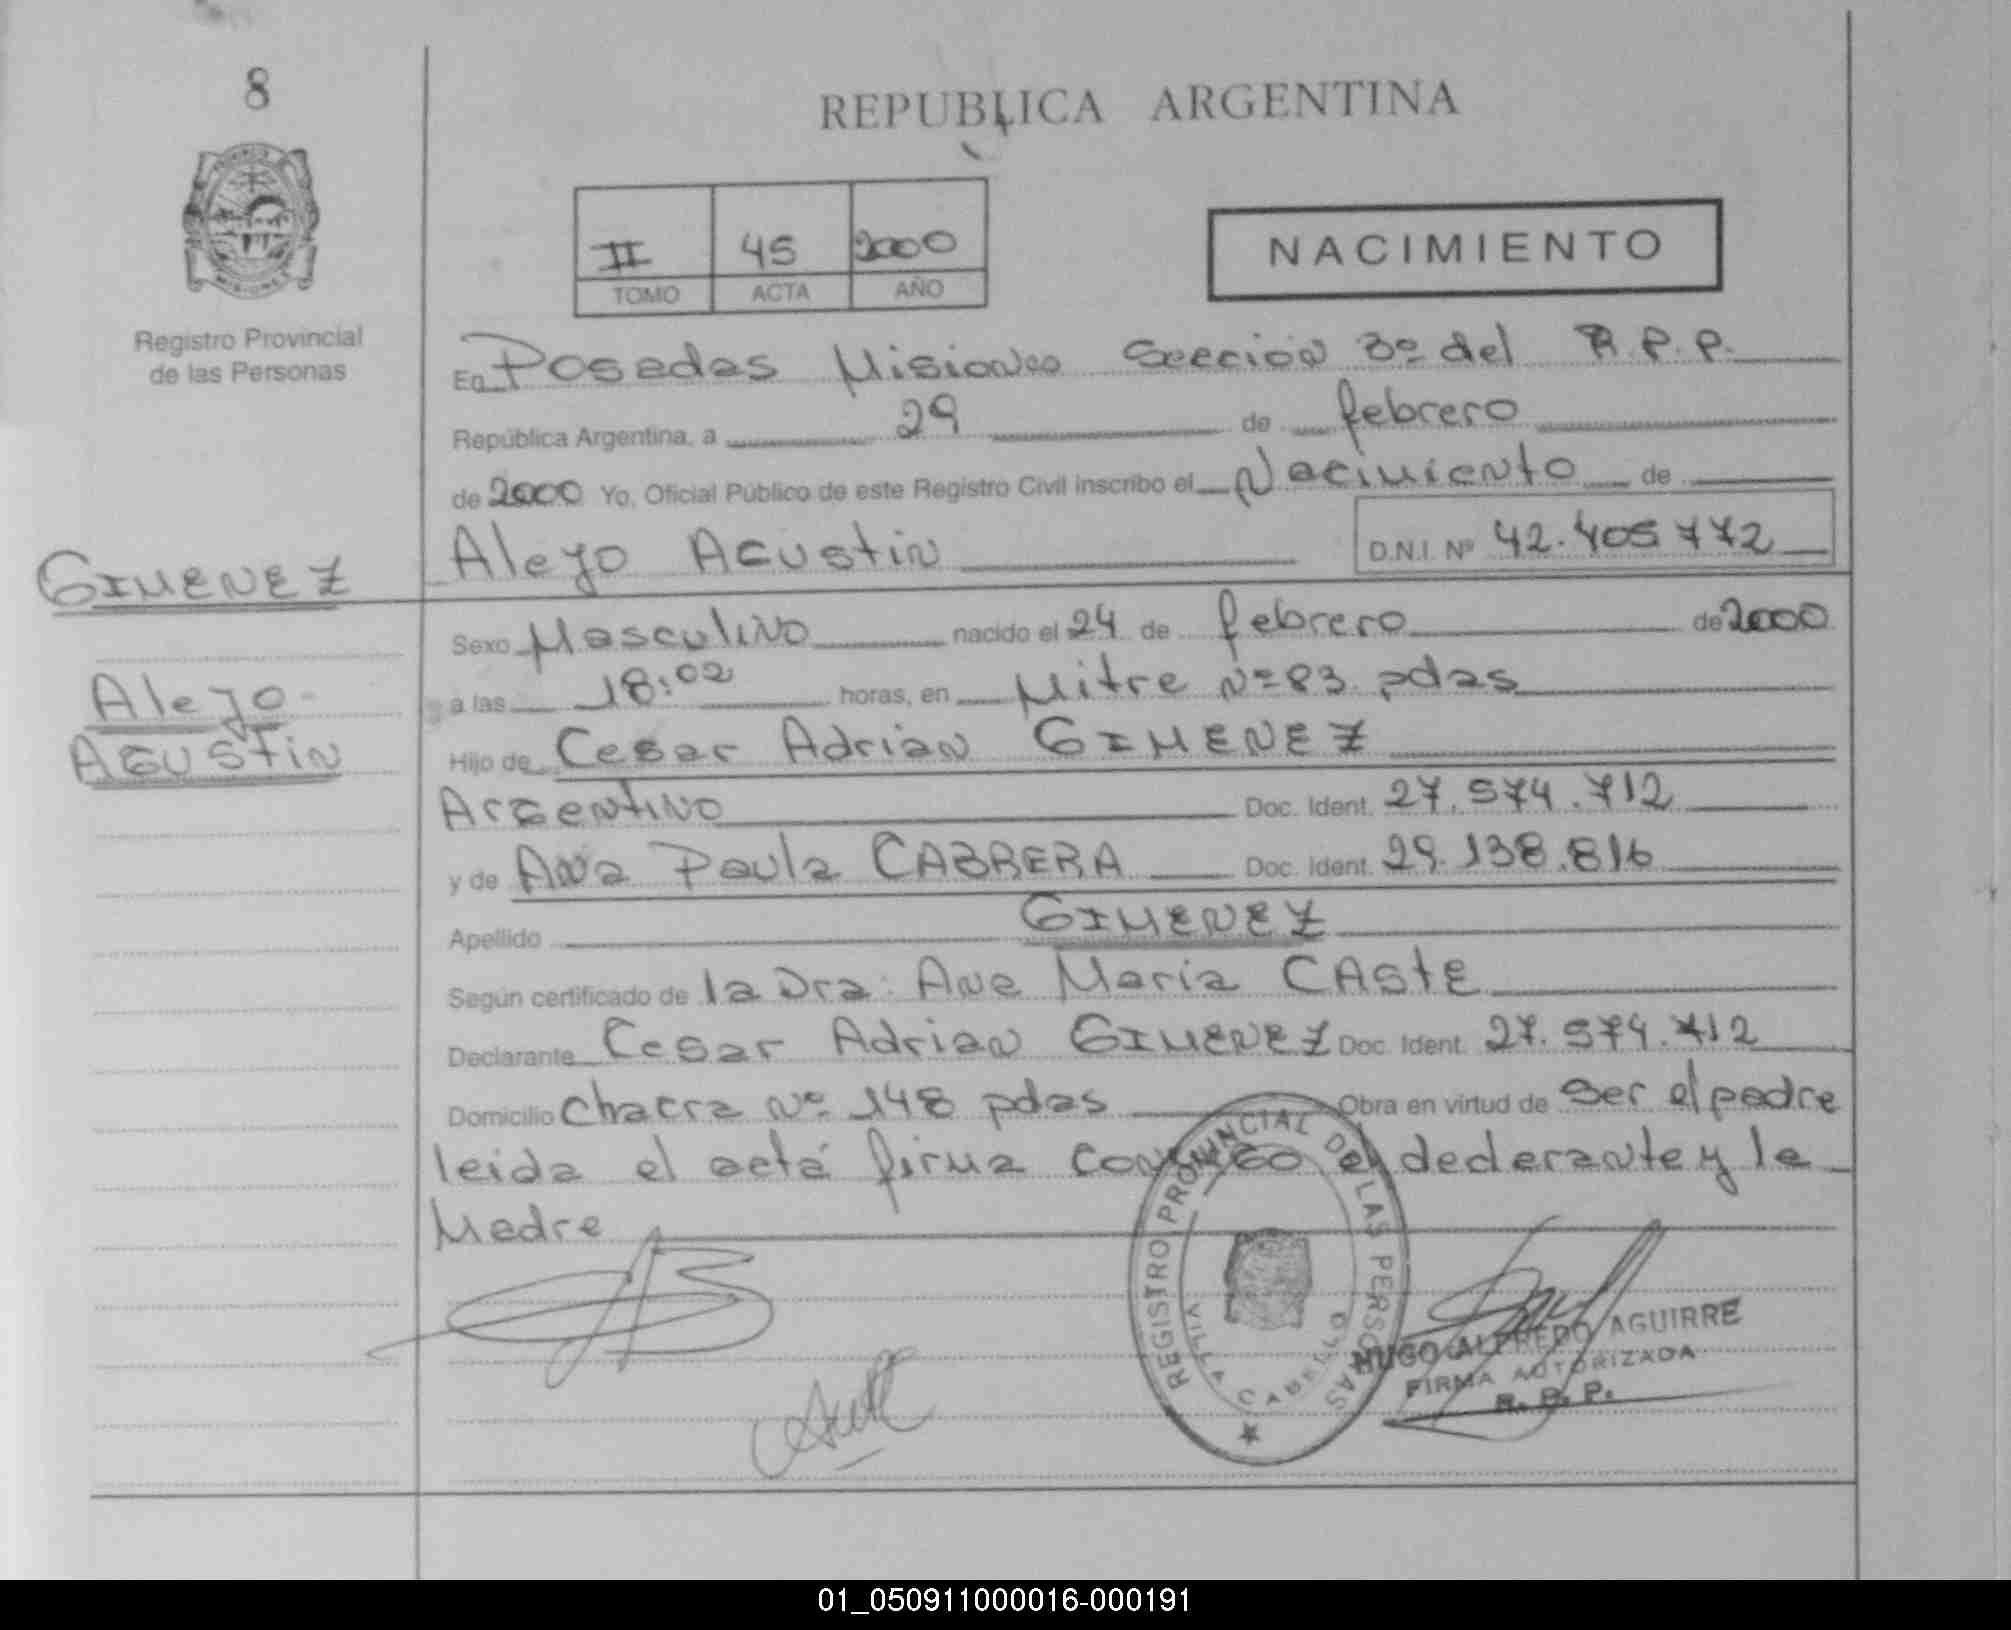 8
REPUBLICA ARGENTINA
II 45 2000
TOMO ACTA AÑO
NACIMIENTO
Registro Provincial
de las Personas
En Posadas Misiones Sección 3º del R.P.P.
República Argentina, a 29 de febrero
de 2000 Yo, Oficial Público de este Registro Civil inscribo el Nacimiento de
Alejo Agustin D.N.I. Nº 42.405.772
GIMENEZ
Alejo
Agustin
Sexo Masculino nacido el 24 de febrero de 2000
a las 18:02 horas, en Mitre Nº 83 pdas
Hijo de Cesar Adrian GIMENEZ
Argentino Doc. Ident. 27.574.712
y de Ana Paula CABRERA Doc. Ident. 29.138.816
Apellido GIMENEZ
Según certificado de la Dra. Ana María CASTE
Declarante Cesar Adrian GIMENEZ Doc. Ident. 27.574.712
Domicilio Chacra Nº 148 pdas Obra en virtud de ser el padre
leida el acta firma conmigo el declarante y la
Madre
REGISTRO PROVINCIAL DE LAS PERSONAS
VILLA CABELLO
HUGO ALFREDO AGUIRRE
FIRMA AUTORIZADA
R. P. P.
01_050911000016-000191